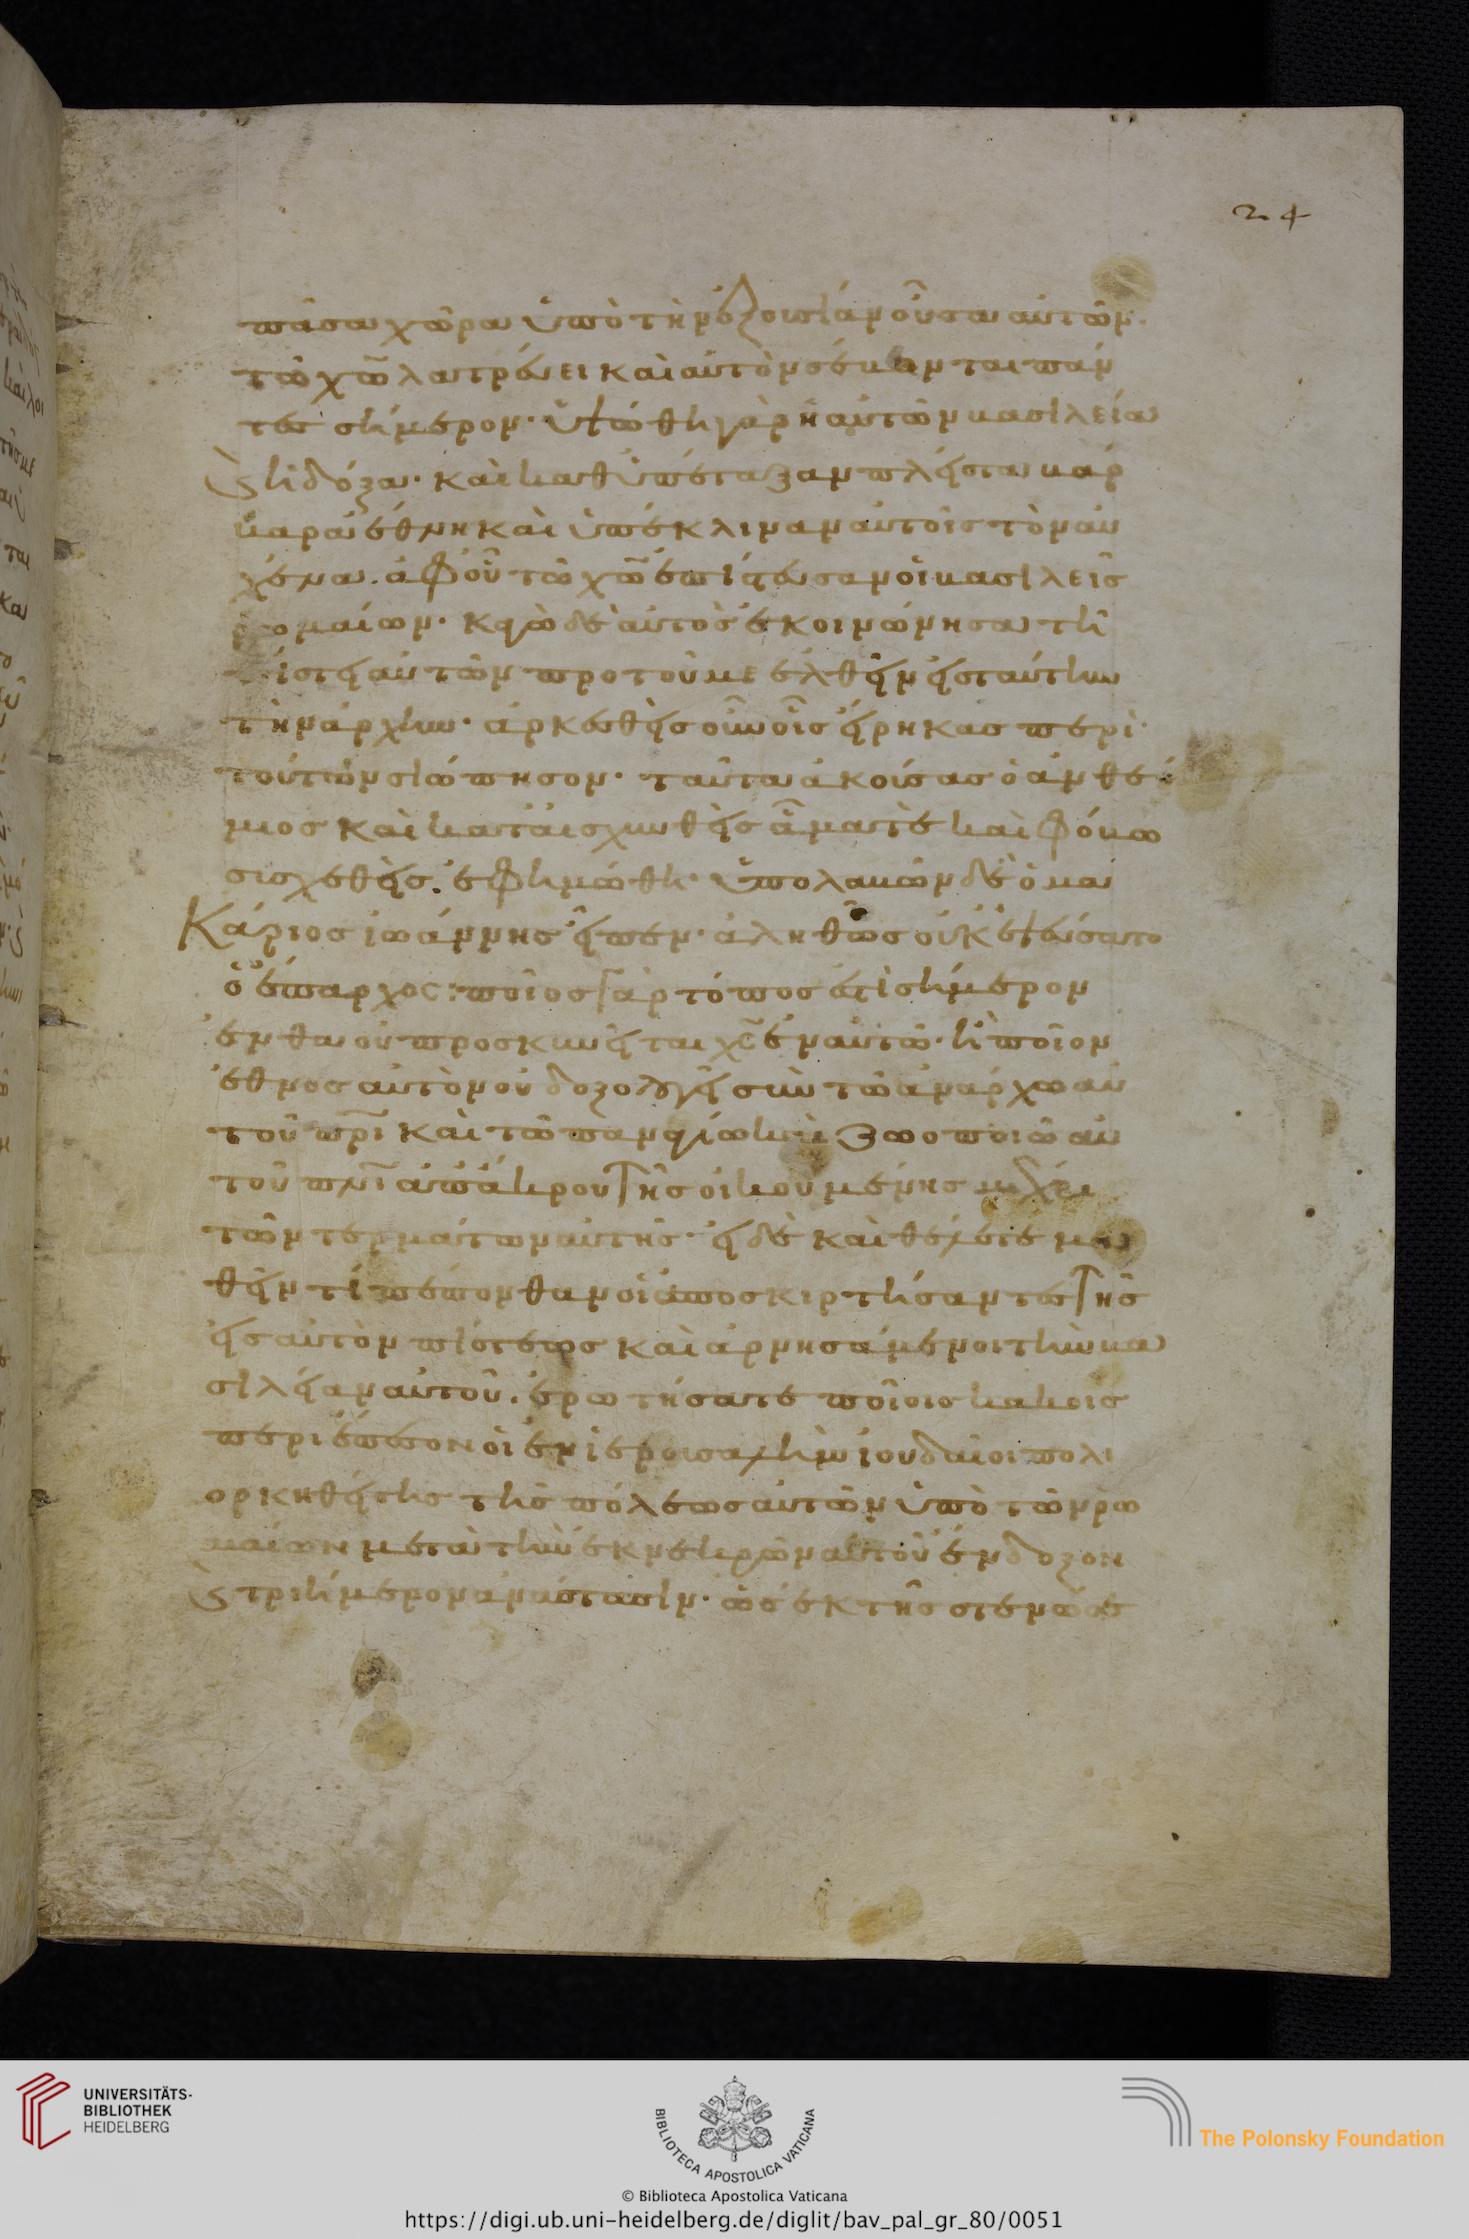 24
πᾶσα χώρα ὑπὸ τὴν ἐξουσίαν οὖσα αὐτῶν.
τῶ χῶ λατρεύει καὶ αὐτὸν σέβονται πάν
τες σήμερον· ὑψώθη γὰρ ἡ αὐτῶν βασιλεία
καὶ ἡ δόξα· καὶ καθυπέταξαν πλεῖστα βάρ
βαρα ἔθνη καὶ ὑπέκλιναν αὐτοῖς τὸν αὐ
χένα. ἀφ' οὗ τῶ χῶ ἐπίστευσαν οἱ βασιλεῖς
ῥωμαίων· κἀγὼ δὲ αὐτὸς ἐκοινώνησα τῆ
πίστει αὐτῶν προτοῦ με ἐλθεῖν εἰς ταύτην
τὴν ἀρχήν· ἀρκεσθεὶς οὖν οἷς εἴρηκας περὶ
τούτων σιώπησον· ταῦτα ἀκούσας ὁ ἀνθέ
μιος καὶ καταισχυνθεὶς ἅμα τὲ καὶ φόβω
συσχεθείς. ἐφημώθη· ὑπολαβὼν δὲ ὁ μα
Κάριος ἰωάννης εἶπεν· ἀληθῶς οὐκ ἐψεύσατο
ὁ ἔπαρχος: ποῖος γὰρ τόπος ἐστὶ σήμερον
ἔνθα οὐ προσκυνεῖται χς ἐν αὐτῶ· ἢ ποῖον
ἔθνος αὐτὸν οὐ δοξολογεῖ σὺν τῶ ἀνάρχω αὐ
τοῦ πρι καὶ τῶ παναγίω καὶ ζωοποιῶ αὐ
τοῦ πνι ἀπ' ἄκρου γῆς οἰκουμένης μέχρι
τῶν τερμάτων αὐτῆς· εἰ δὲ καὶ θέλετε μα
θεῖν τί πέπονθαν οἱ ἀποσκιρτήσαντες τῆς
εἰς αὐτὸν πίστεως καὶ ἀρνησάμενοι τὴν βα
σιλείαν αὐτοῦ. ἐρωτήσατε ποίοις κακοῖς
περιέπεσον οἱ ἐν ἱερουσαλὴμ ἰουδαῖοι πολι
ορκηθείσης τῆς πόλεως αὐτῶν ὑπὸ τῶν ῥω
μαίων μετὰ τὴν ἐκ νεκρῶν αὐτοῦ ἔνδοξον
καὶ τριήμερον ἀνάστασιν· ὡς ἐκ τῆς στενώσε
UNIVERSITÄTS-
BIBLIOTHEK
HEIDELBERG
BIBLIOTECA APOSTOLICA VATICANA
The Polonsky Foundation
© Biblioteca Apostolica Vaticana
https://digi.ub.uni-heidelberg.de/diglit/bav_pal_gr_80/0051